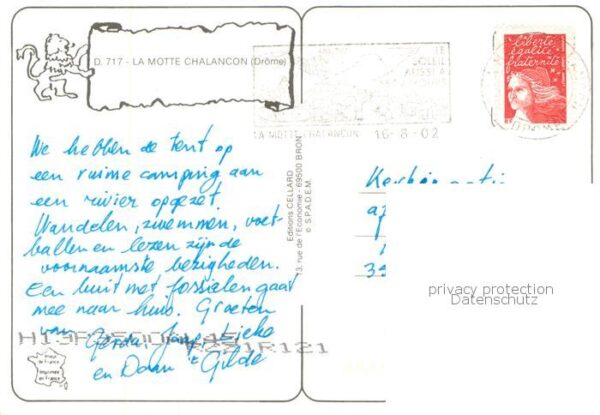 D. 717 - LA MOTTE CHALANCON (Drôme)
LE
SOLEIL
AUSSI A
LA MOTTE CHALANCON 16-8-02
liberté
égalité
fraternité
DROME
We hebben de tent op
een ruime camping aan
een rivier opgezet.
Wandelen, zwemmen, voet-
ballen en lezen zijn de
voornaamste bezigheden.
Een buit met fossielen gaat
mee naar huis. Groeten
van
Gerda, Jaap, Lieke
en Daan 't Gilde
Editions CELLARD
13, rue de l'Economie - 69500 BRON
© S.P.A.D.E.M.
privacy protection
Datenschutz